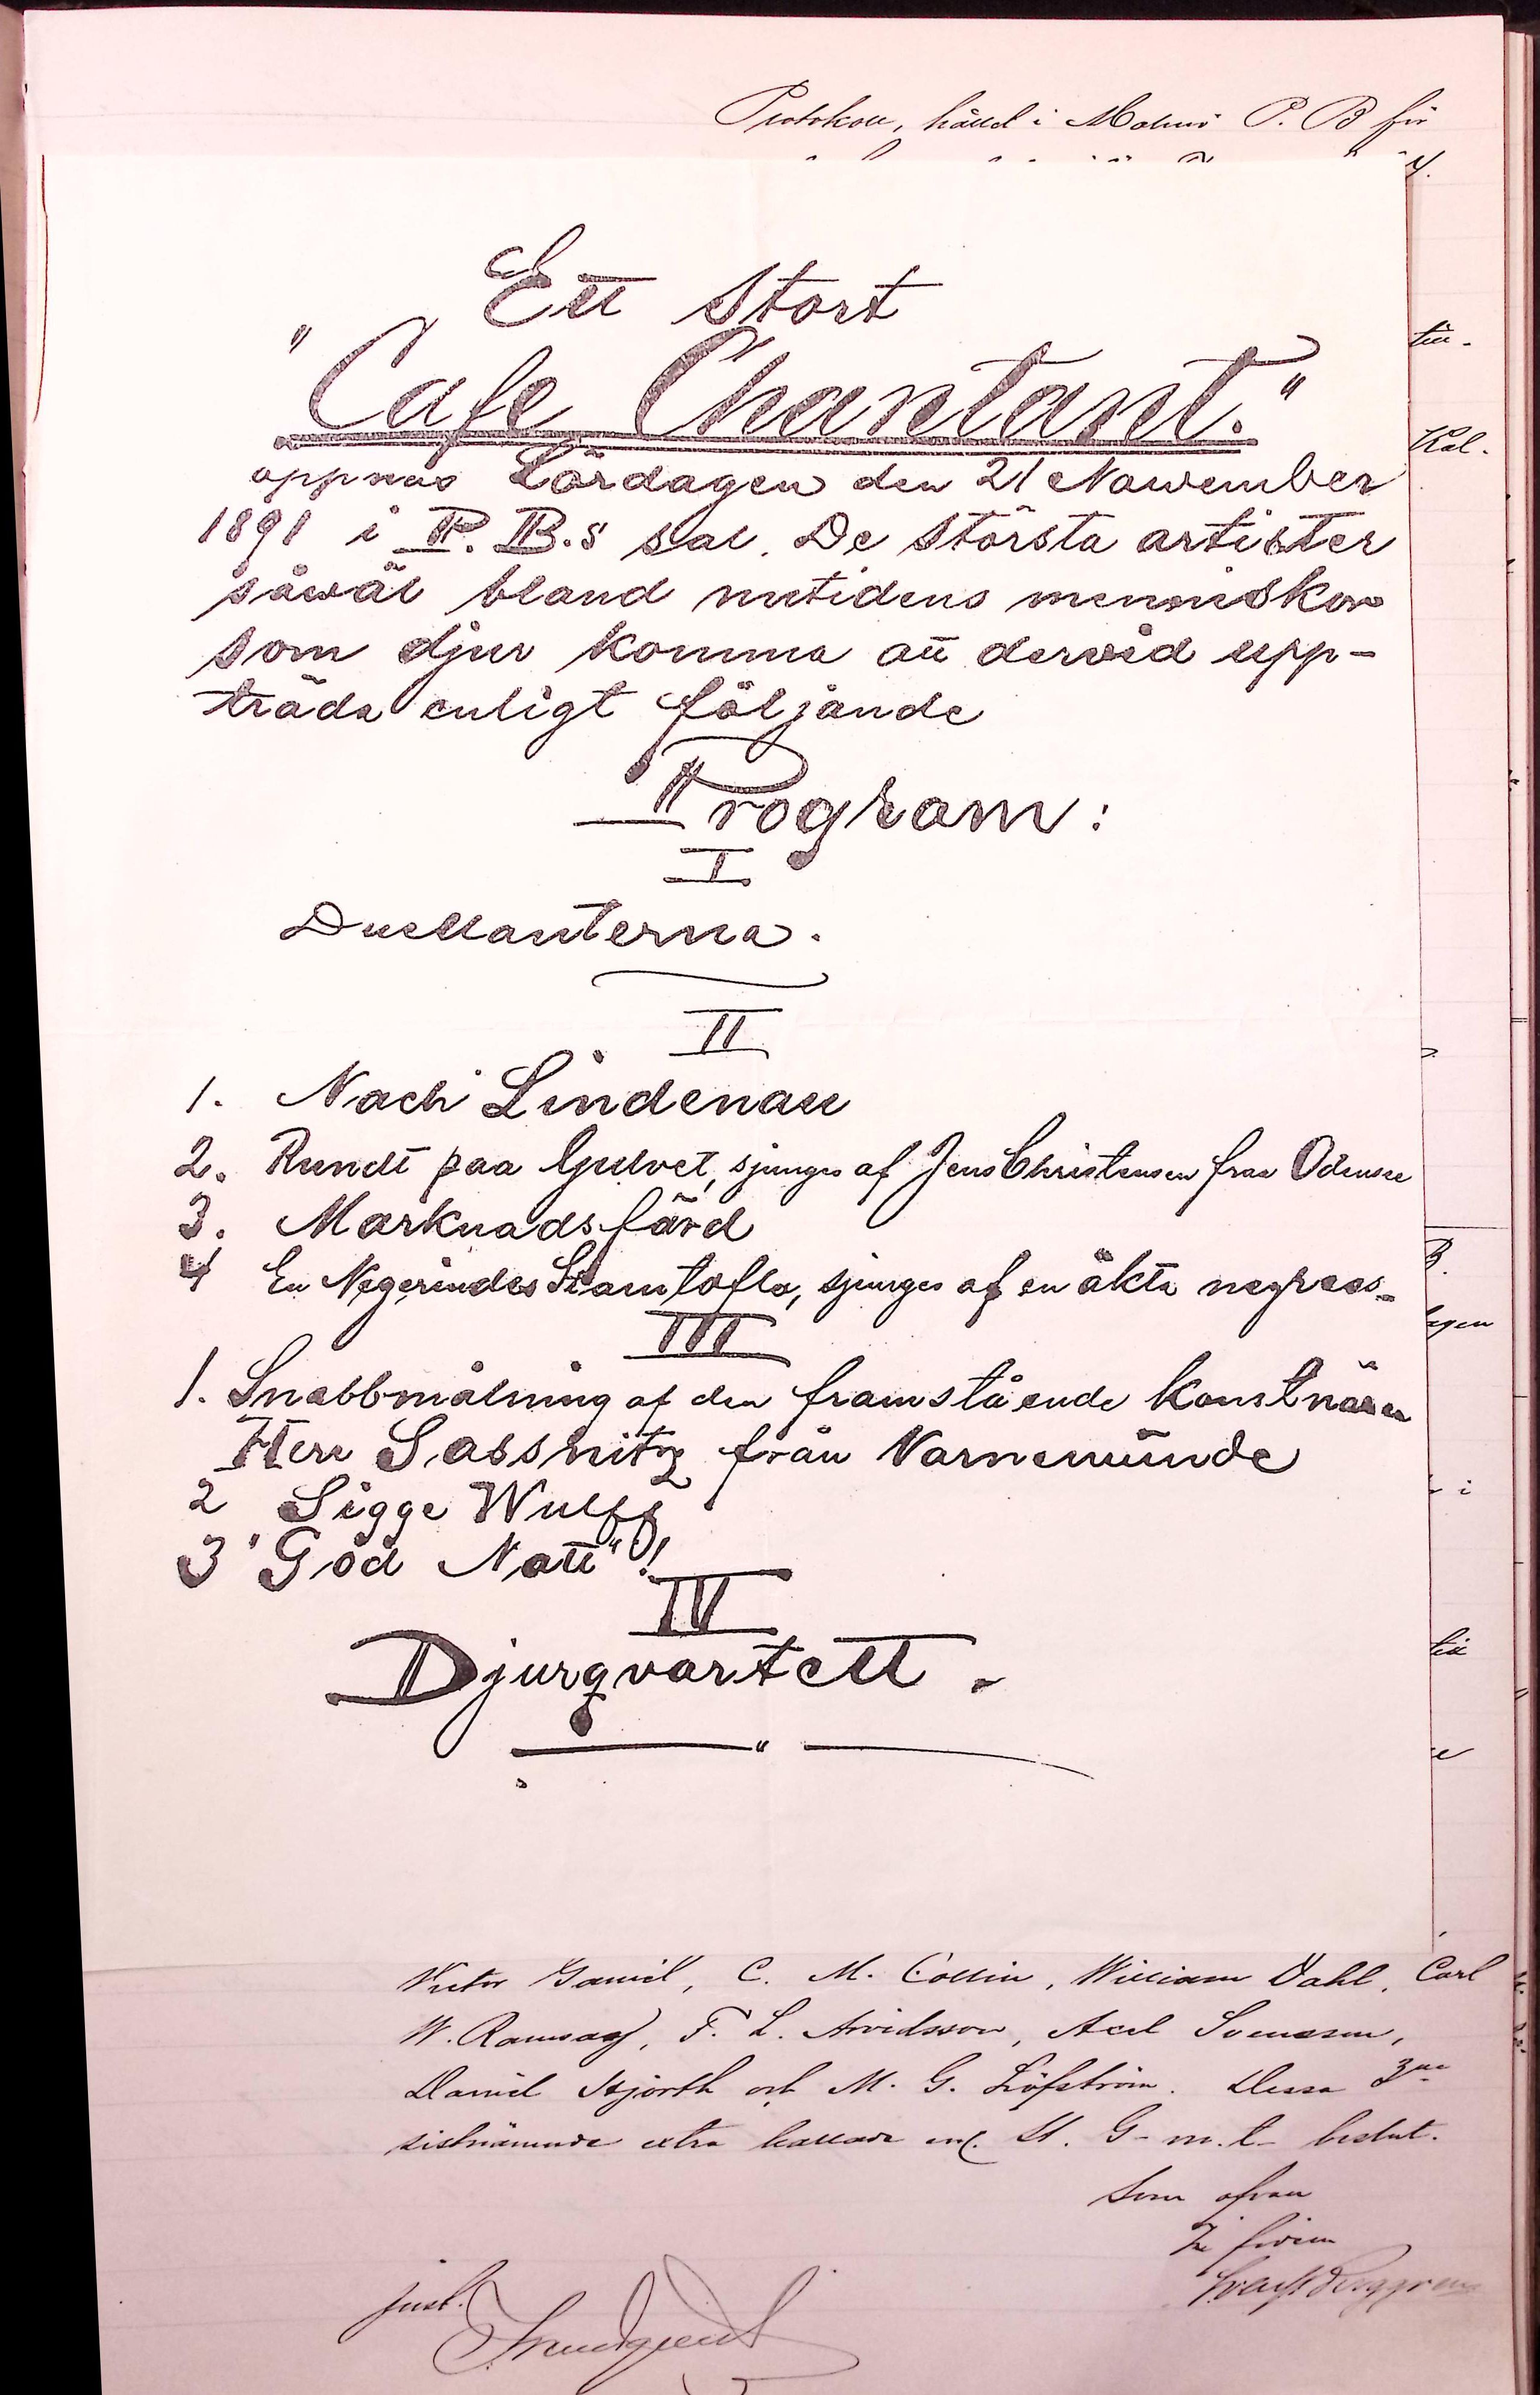 Protokoll, hållet i Malmö P. B för
Ett Stort
"Cafe Chantant."
öppnas Lördagen den 21 Nowember
1891 i P. B.s sal. De största artister
såwäl bland nutidens menniskor
som djur komma att dervid upp-
träda enligt följande
Program:
I
Duellanterna.
II
1. Nach Lindenau
2. Rundt paa Gulvet, sjunges af Jens Christensen fraa Odensee
3. Marknadsfärd
4 En Negerindes sjunges af en äkta negress.
III
1. Snabbmålning af den framstående konstnären
Herr Sassnitz från Varnemünde
2 Sigge Wulff
3 "God Natt"!
IV
Djurqvartett.
till.
Kol.
B.
i
till
Victor C. M. Collin, William Dahl, Carl
W. Ramsay, F. L. Arvidsson, Axel Svensson,
Daniel Hjorth och M. G. Löfström. Dessa 3ne
sistnämnde extra kallade enl. St. G-m.t- beslut.
Som ofvan
In fidem
just.